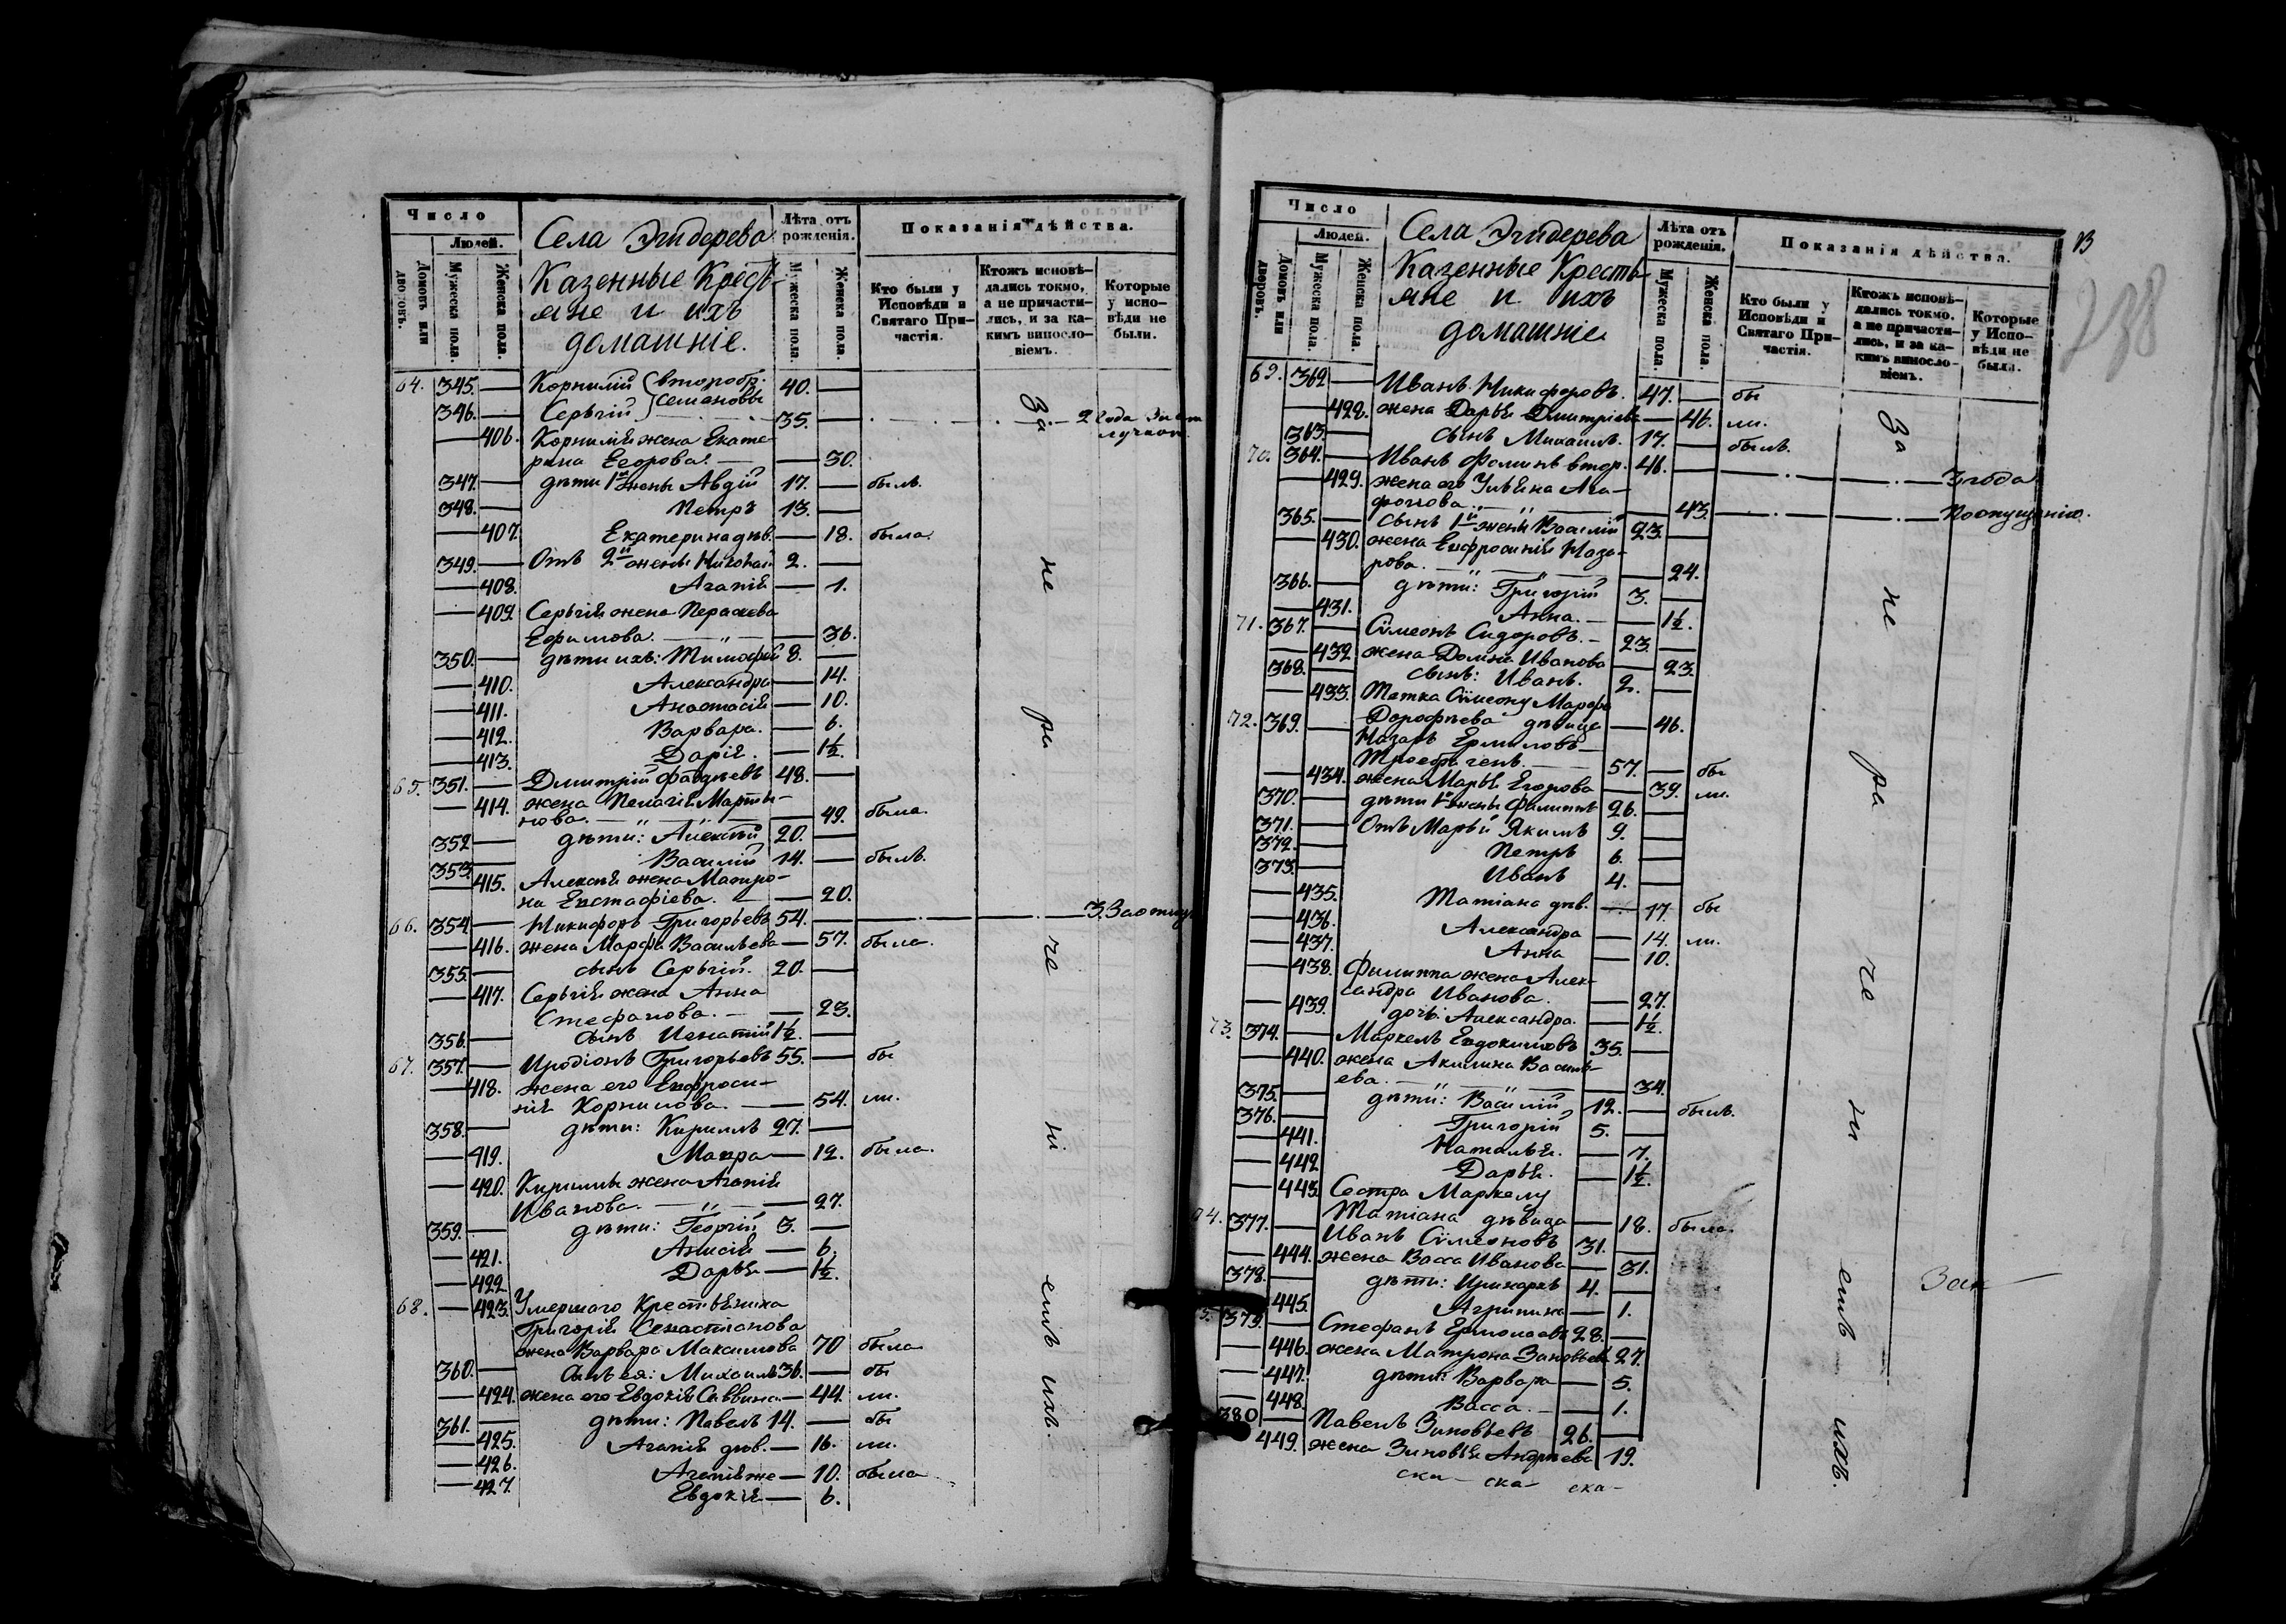 Число
Людей.
Домовъ или дворовъ.
Мужеска пола.
Женска пола.
Села Эгидерева
Казенные Кресть-
яне и ихъ
домашніе.
Лѣта отъ рожденія.
Мужеска пола.
Женска пола.
Показанія дѣйства.
Кто были у Исповѣди и Святаго Причастія.
Ктожъ исповѣдались токмо, а не причастились, и за какимъ винословіемъ.
Которые у исповѣди не были.
64. 345. — Корнилій второбр. 40. —
346. — Сергій Семеновы 35. — 2 года
— 406. Корнилія жена Екате-
рина Егорова. — 30.
347. — дѣти 1й жены Авдій 17. — былъ.
348. — Петръ 13. —
— 407. Екатерина дѣв. — 18. была.
349. — Отъ 2й жены Николай 2. —
— 408. Агапія — 1.
— 409. Сергія жена Параскева
Ефимова. — „ — 36.
350. — дѣти ихъ: Тимофей 8. —
— 410. Александра — 14.
— 411. Анастасія — 10.
— 412. Варвара. — 6.
— 413. Дарія. — 1½.
65. 351. — Дмитрій Фаддѣевъ 48. —
— 414. жена Пелагія Марты-
нова. — „ — „ — 49. была.
352 — дѣти: Алексѣй 20. —
353. — Василій 14. — былъ.
— 415. Алексѣя жена Матро-
на Евстафіева. — 20.
66. 354 — Никифоръ Григорьевъ 54. — 3.
— 416. жена Марфа Васильева — 57. была.
355. — сынъ Сергій. 20. —
— 417. Сергія жена Анна
Стефанова. — 23.
356. — сынъ Игнатій 1½. —
67. 357. — Иродіонъ Григорьевъ 55. — бы
— 418. жена его Евфроси-
нія Корнилова. — 54. ли.
358. — дѣти: Кириллъ 27. —
— 419. Мавра — 12. была.
— 420. Кирилла жена Агапія
Иванова. — „ — 27.
359. — дѣти: Георгій 3. —
— 421. Анисія — 6.
— 422 Дарья — 1½.
68. — 423. Умершаго Крестьянина
Григорія Севастіанова
жена Варвара Максимова 70 была
360. — сынъ ея: Михаилъ 36. — бы
— 424. жена его Евдокія Саввина — 44. ли.
361. — дѣти: Павелъ 14. — бы
— 425. Агапія дѣв. — 16. ли.
— 426. Агапія же — 10. была
— 427. Евдокія — 6.
За не ра че ні емъ ихъ.
Число
Людей.
Домовъ или дворовъ.
Мужеска пола.
Женска пола.
Села Эгидерева
Казенные Кресть-
яне и ихъ
домашніе
Лѣта отъ рожденія.
Мужеска пола.
Женска пола.
Показанія дѣйства.
Кто были у Исповѣди и Святаго Причастія.
Ктожъ исповѣдались токмо, а не причастились, и за какимъ винословіемъ.
Которые у Исповѣди не были.
238
69. 362 — Иванъ Никифоровъ. 47. — бы
— 428. жена Дарья Дмитріева — 46. ли.
363. — сынъ Михаилъ. 17. — былъ.
70. 364. — Иванъ Фоминъ втор. 46. — 3 года
— 429. жена его Ульяна Ага-
фонова. — „ — 43. — По опущенію.
365. — сынъ 1й жены Василій 23. —
— 430. жена Евфросинія Наза-
рова. — „ — „ — 24.
366. — дѣти: Григорій 3. —
— 431. Анна. — 1½.
71. 367. — Сѵмеонъ Сидоровъ. — 23. —
— 432 жена Домна Иванова — 23.
368. — сынъ: Иванъ. 2. —
— 433. Тетка Сѵмеону Марфа
Дорофѣева дѣвица — 46.
72. 369. — Назаръ Ермиловъ —
Троебраченъ. — 57. — бы
— 434. жена Марья Егорова — 39. ли.
370. — дѣти 1й жены Филиппъ 26. —
371. — Отъ Марьи Якимъ 9. —
372. — Петръ 6. —
373. — Иванъ 4. —
— 435. Татіана дѣв. — 17. бы
— 436. Александра — 14. ли.
— 437. Анна — 10.
— 438. Филиппа жена Алек-
сандра Иванова. — 27.
— 439. дочь: Александра. — 1½.
73. 374. — Маркелъ Евдокимовъ 35. —
— 440. жена Акилина Василь-
ева. — „ — „ — 34.
375. — дѣти: Василій 12. — былъ.
376. — Григорій 5. —
— 441. Наталья. — 7.
— 442 Дарья. — 1½.
— 443. Сестра Маркелу
Татіана дѣвица — 18. была.
74. 377. — Иванъ Сѵмеоновъ 31. —
— 444. жена Васса Иванова — 31.
378. — дѣти: Иринархъ 4. —
— 445. Агрипина — 1.
379. — Стефанъ Ермолаевъ 28. —
— 446. жена Матрона Зиновьева 27.
— 447. дѣти: Варвара — 5.
— 448. Васса. — 1.
380 — Павелъ Зиновьевъ 26. —
449. жена Зиновья Андреева 19.
За не ра че ні емъ ихъ.
ска— ска— ска—